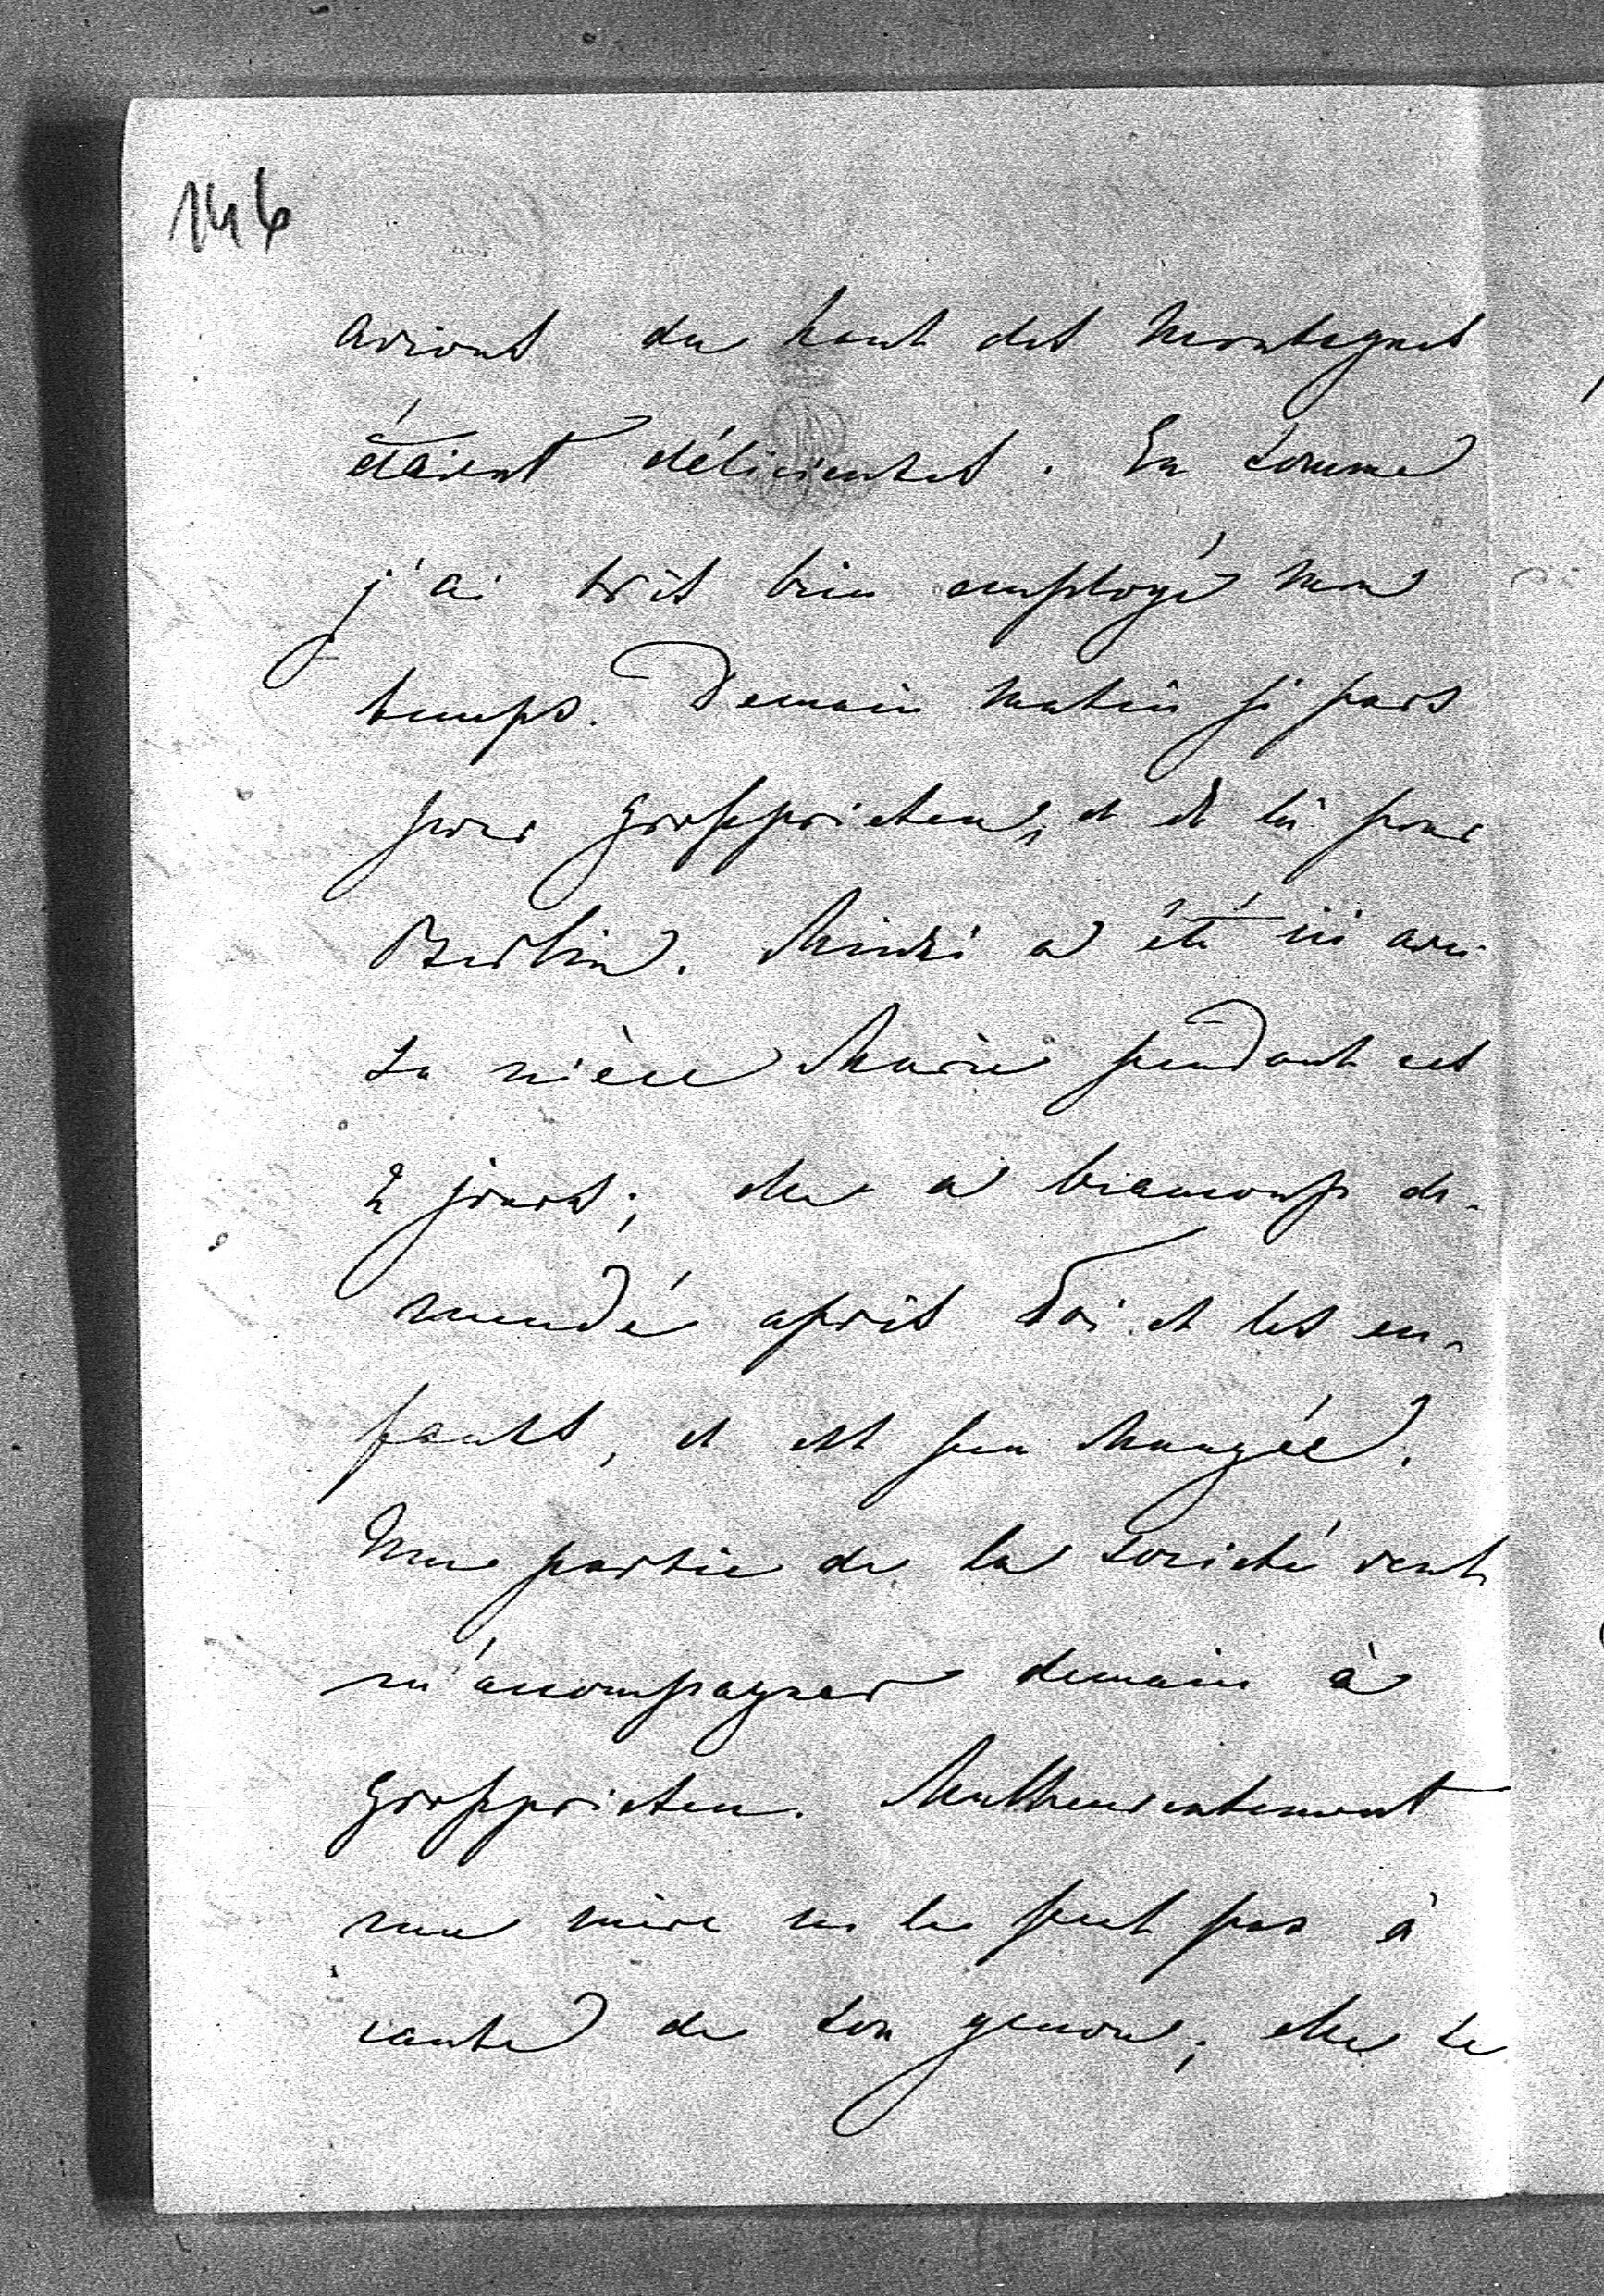 146
avions du haut des Montagnes
étaient délicieuses. En somme
j'ai très bien employé mon
temps. Demain matin je pars
pour Grosspriesen, et de là pour
Berlin. a été ici avec
sa nièce Marie pendant ces
2 jours; elle a beaucoup de-
mandé après Toi et les en-
fants, et est peu changée.
Une partie de la société veut
m'accompagner demain à
Grosspriesen. Malheureusement
ma mère ne le peut pas à
cause de son genou; elle se